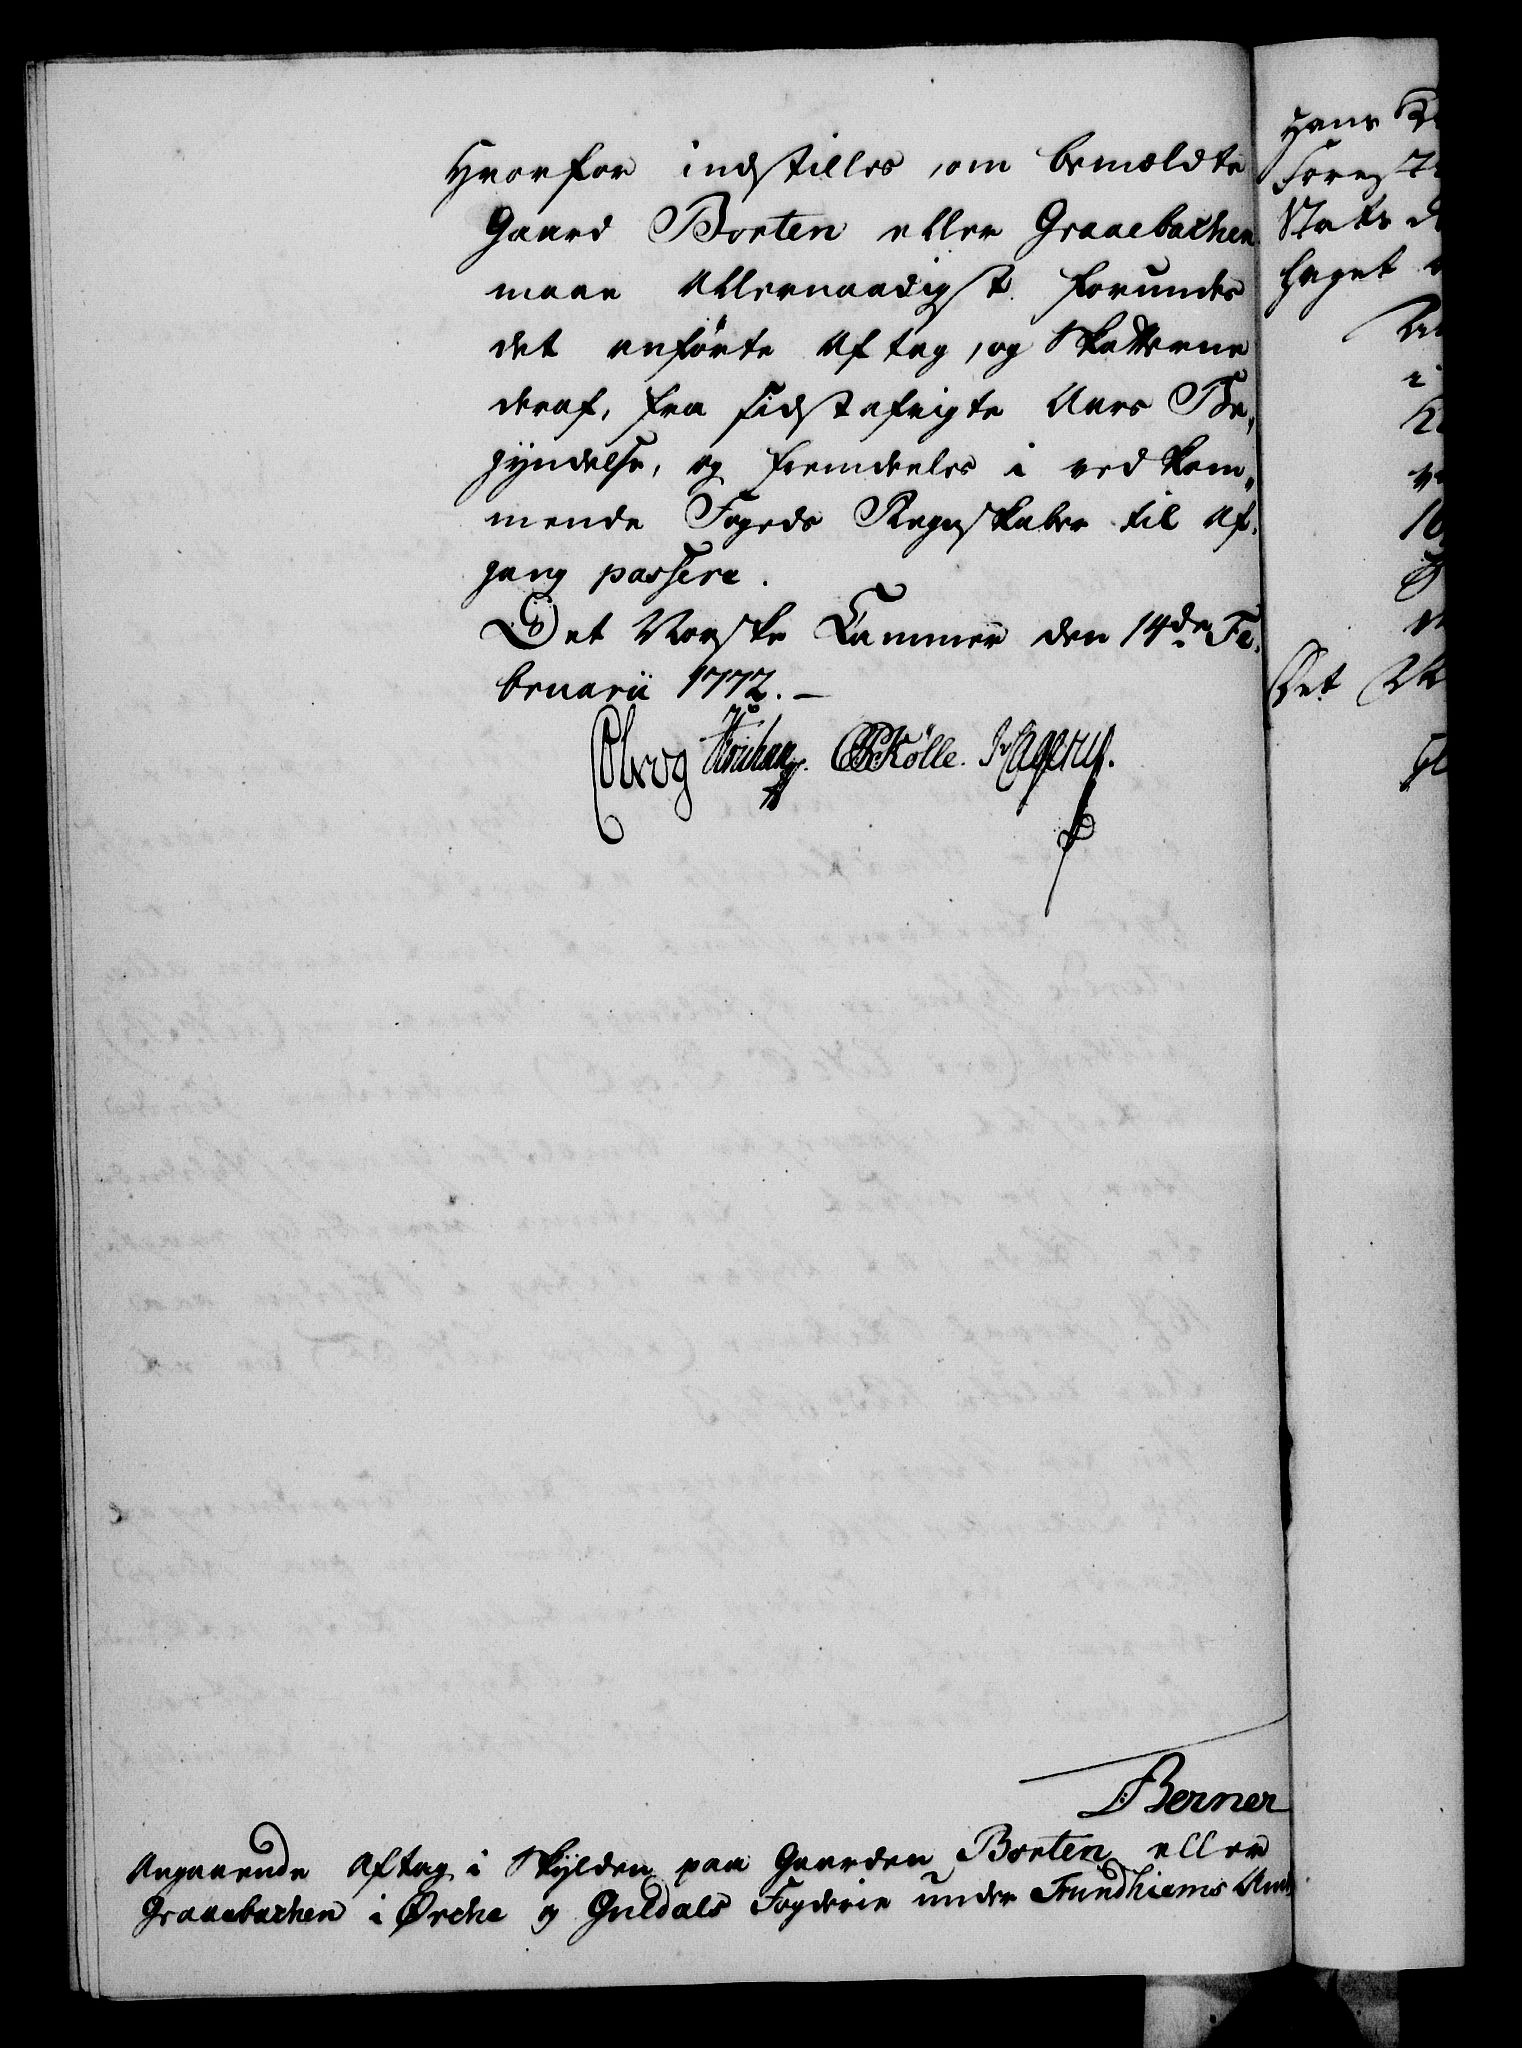 Hvorfor indstilles, om bemældte
Gaard Borten eller Graaebachen
maae allernaadigst forundes
det anførte Aftag, og Skatterne
deraf, fra sidstafvigte Aars Be-
gyndelse, og fremdeeles i vedkom-
mende Fogeds Regnskaber til Af-
gang passere.
Det Norske Kammer den 14de Fe-
bruarii 1772.
GSKølle.
Berner
Angaaende Aftag i Skylden paa Gaarden Borten eller
Graaebachen i Ørche og Guldals Fogderie under Trundhiems Amt
Hans
Det